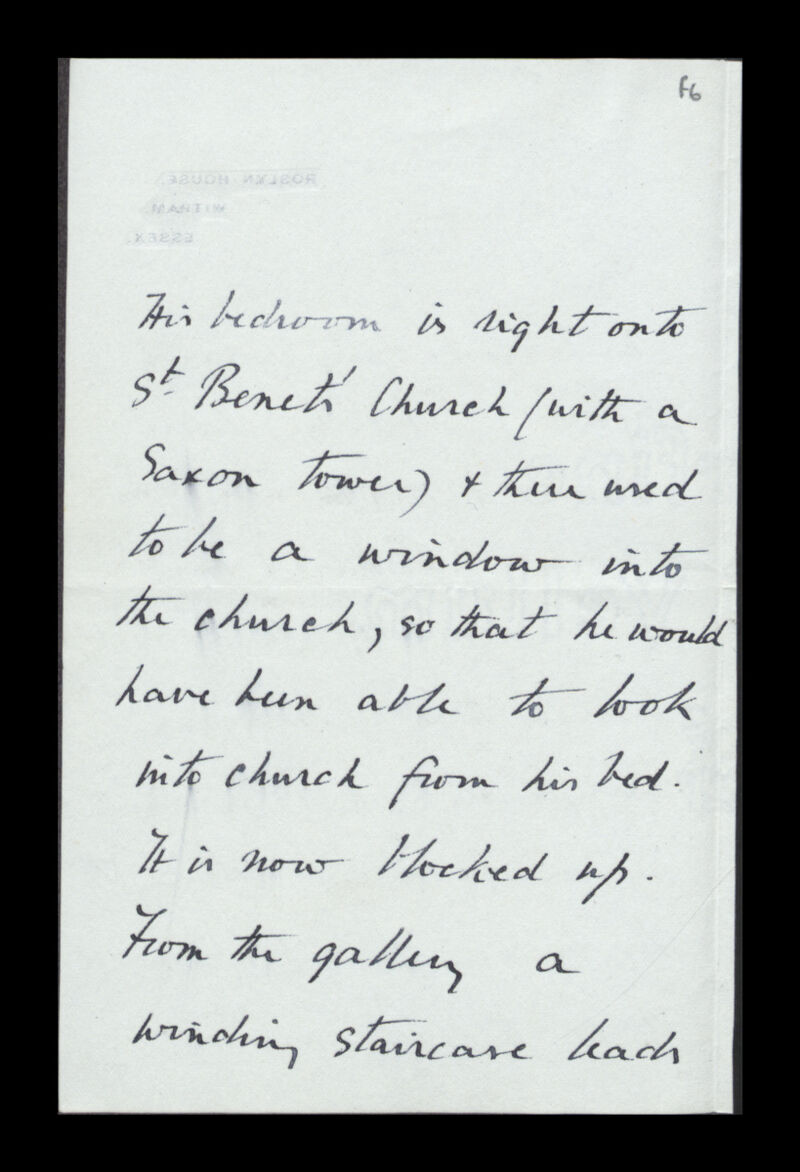 f6
ROSLYN HOUSE,
WITHAM,
ESSEX.
His bedroom is right onto
St Benets' Church (with a
Saxon tower) & there used
to be a window into
the church, so that he would
have been able to look
into church from his bed.
It is now blocked up.
From the gallery a
winding staircase leads